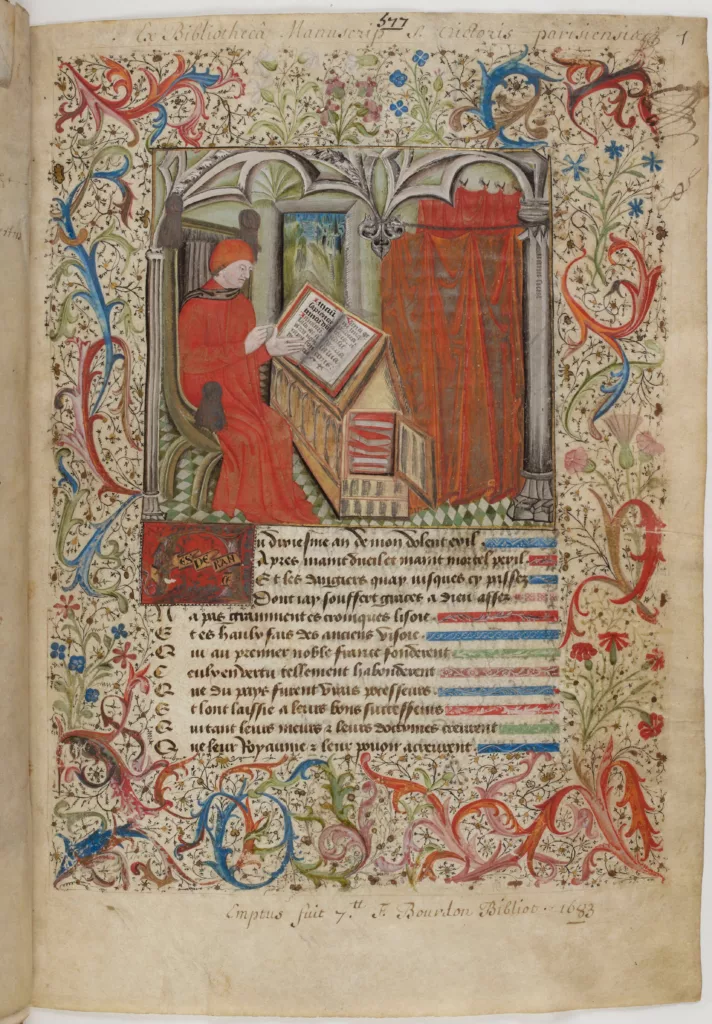 577
Ex Bibliothecâ Manuscrip S. Victoris parisiensis 1
u dixiesme an de mon dolent exil
Apres maint dueil et maint mortel peril
Et les dangiers quay iusques cy passez
Dont iay souffert graces a dieu assez
N a pas granment es croniques lisoie
E t es haulx fais des anciens visoie
Q ui au premier noble france fonderent
C eulx en vertu tellement habonderent
Q ue du pays furent vrais possesseurs
E t lont laissie a leurs bons successeurs
Q ui tant leurs meurs & leurs doctrines creurent
Q ue leur Royaume & leur pouoir acreurent
Emptus fuit 7 tt F. Bourdon Bibliot. 1683